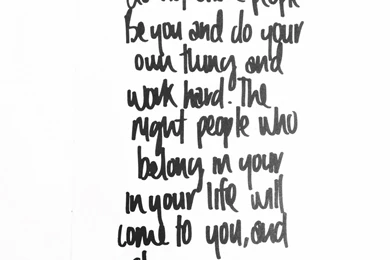 people
be you and do your
own thing and
work hard. The
right people who
belong in your
in your life will
come to you, and